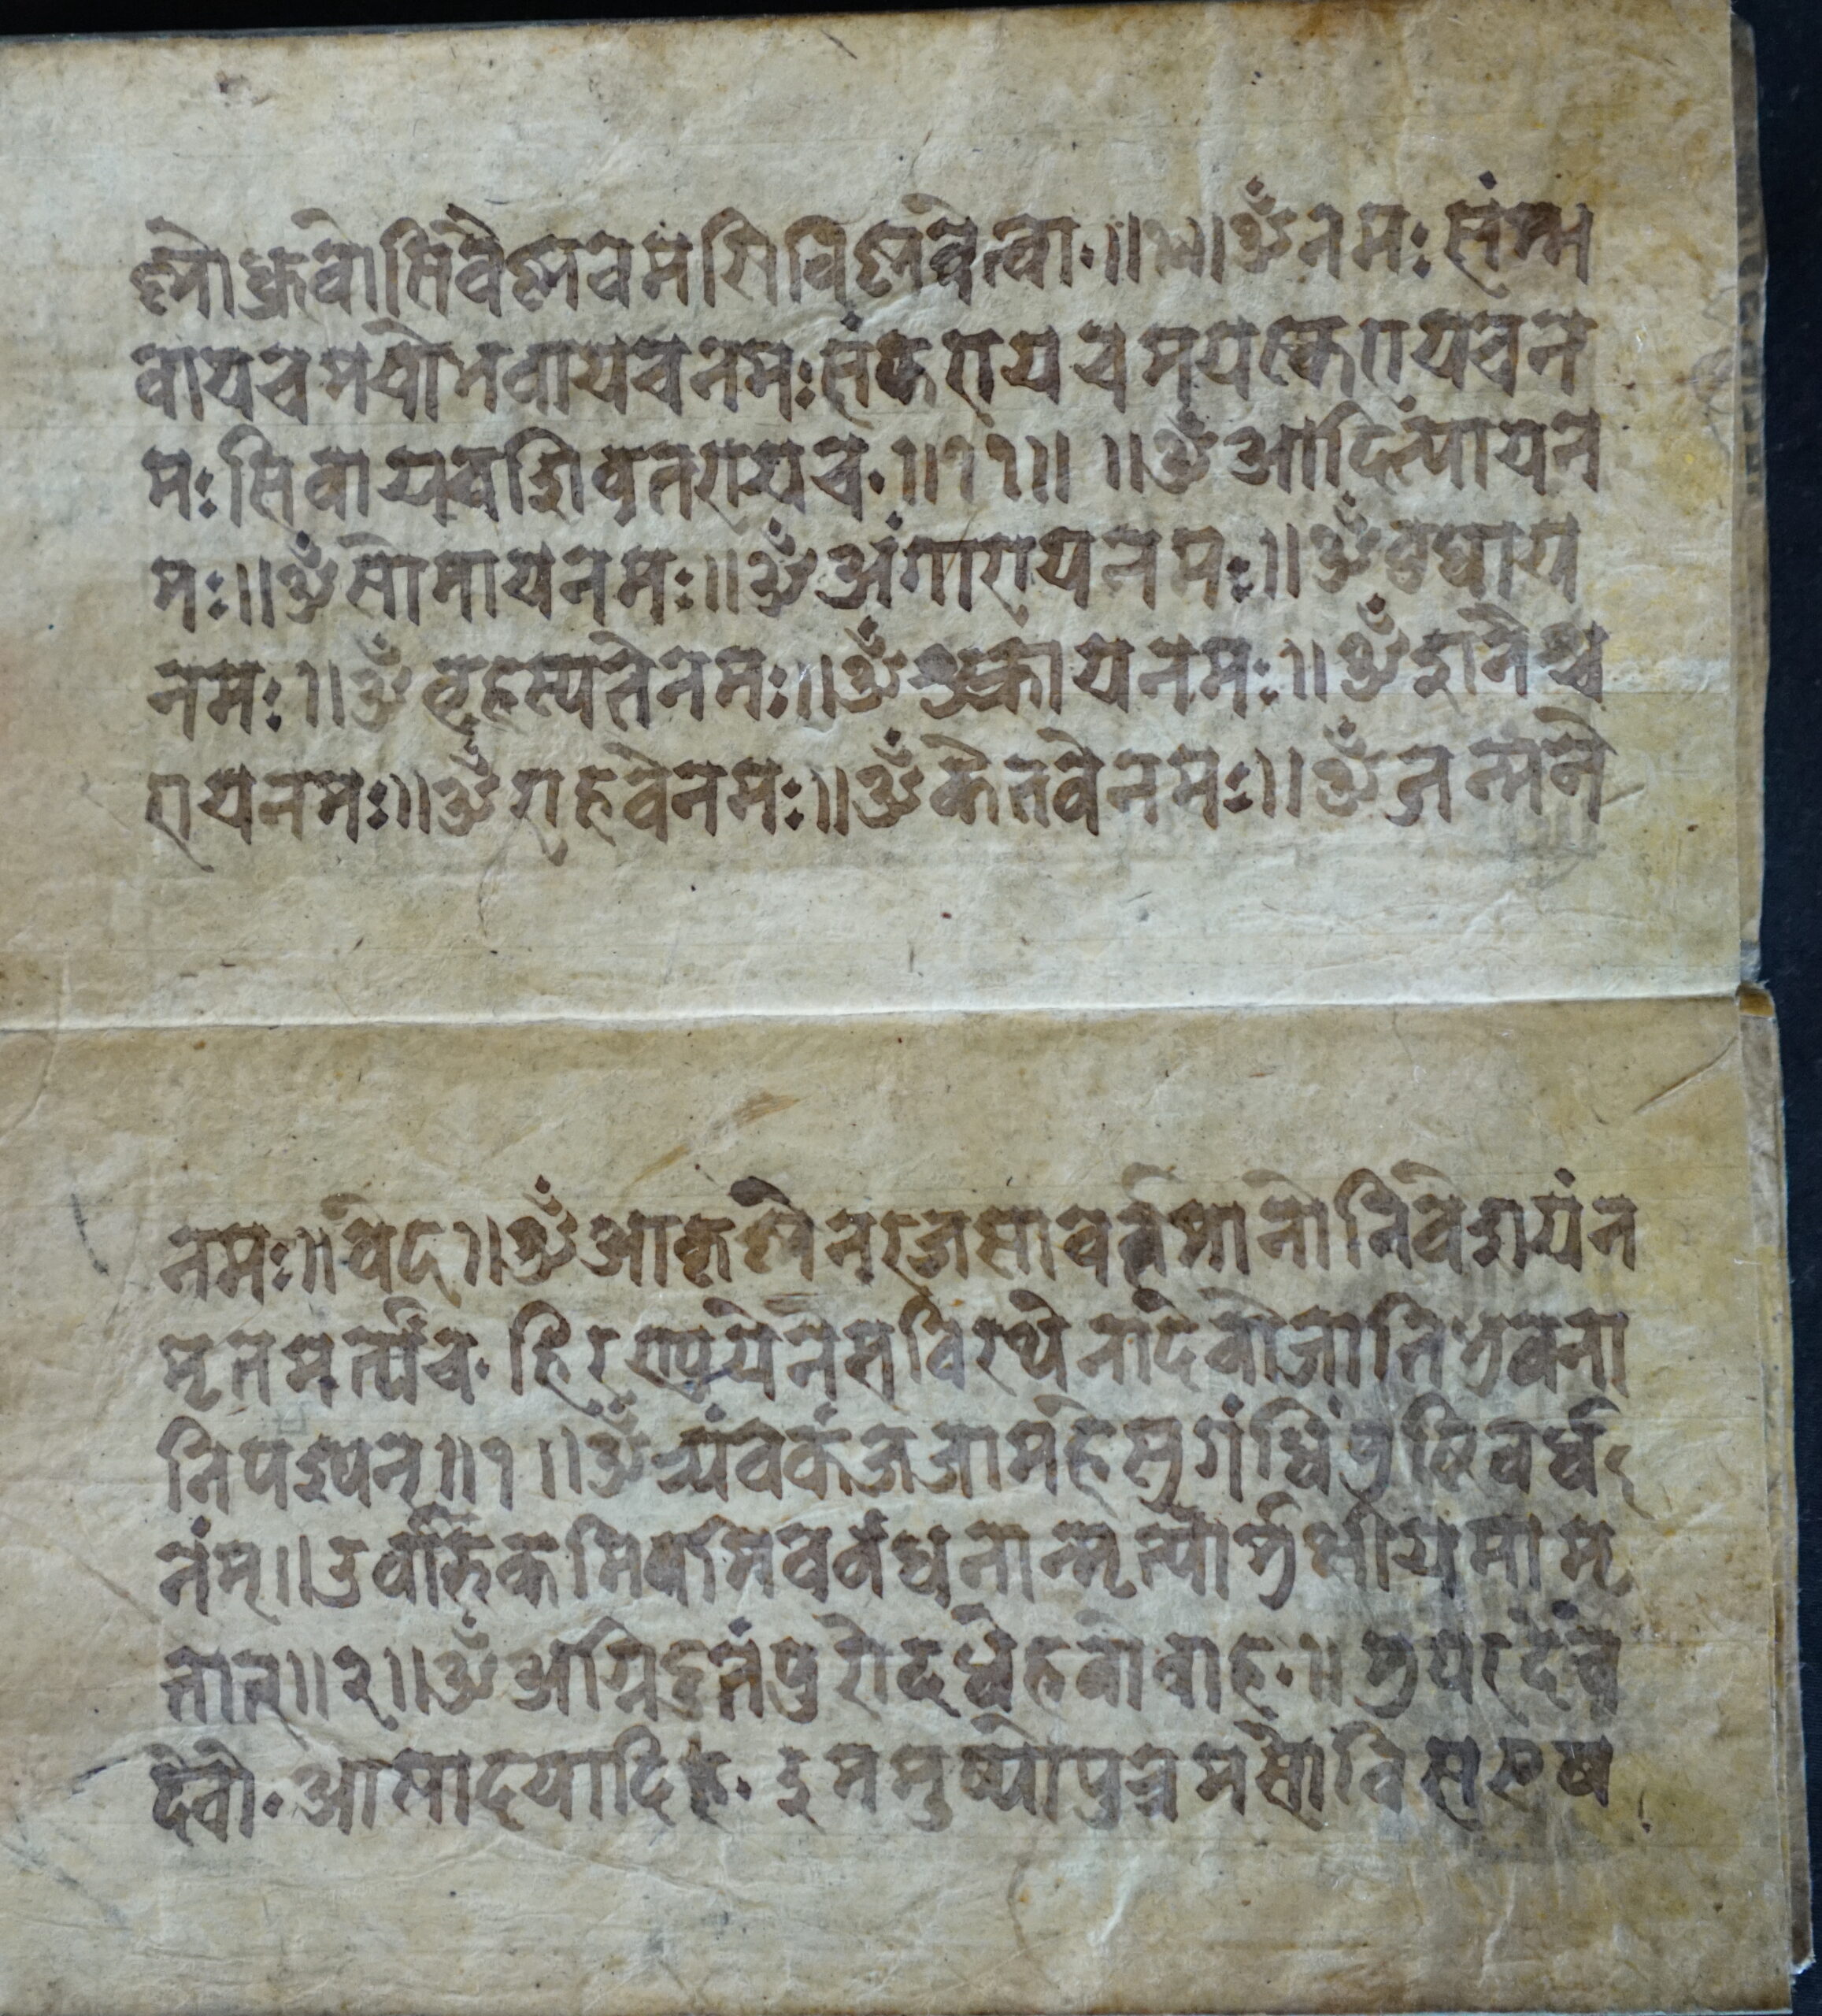 ष्णोध्रुवोसिवैष्णवमसिविष्णवेत्वा॰॥१०॥ॐनमःसंम्भ
वायचमयोभवायचनमःसंकरायचमयस्करायचन
मःसिवायचशिवतरायच॰॥११॥ ॥ॐआदित्यायन
मः॥ॐसोमायनमः॥ॐअंगारायनमः॥ॐबुधाय
नमः॥ॐबृहस्पतेनमः॥ॐशुक्रायनमः॥ॐशनैश्च
रायनमः॥ॐराहवेनमः॥ॐकेतवेनमः॥ॐजन्मने
नमः॥वेद॥ॐआकृष्णेनरजसावर्त्तमानोनिवेशयंन
मृतमर्त्यंच॰हिरण्ययेनसविरथेनादेवोजातिभुवना
निपश्यन्॥१॥ॐत्र्यंवकंजजामहेसुगंधिंपुष्टिवर्ध
नंम्॥उर्वारुकमिवमवबंधनान्मृत्योर्भुक्षीयमामृ
तात्॥२॥ॐअग्निदुतंपुरोदधेहवोवाह॰॥
देवो॰आसादयादिह॰इममुष्यपुत्रमसौवि